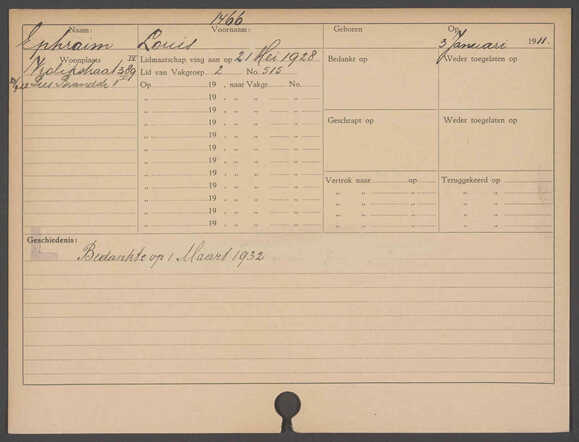 1466
Naam: Voornaam: Geboren Op
Ephraim Louis 3 Januari 1911.
Woonplaats IV Lidmaatschap ving aan op 21 Mei 1928 Bedankt op Weder toegelaten op
389 Lid van Vakgroep 2 No. 515
Op 19 , naar Vakgr. No.
„ 19 „ „ „
„ 19 „ „ „
„ 19 „ „ „
Geschrapt op Weder toegelaten op
„ 19 „ „ „
„ 19 „ „ „
„ 19 „ „ „
„ 19 „ „ „
Vertrok naar op Teruggekeerd op
„ 19 „ „ „ „ „ „ „
„ 19 „ „ „ „ „ „ „
„ 19 „ „ „ „ „ „ „
„ 19 „ „ „ „ „ „ „
Geschiedenis:
Bedankte op 1 Maart 1932